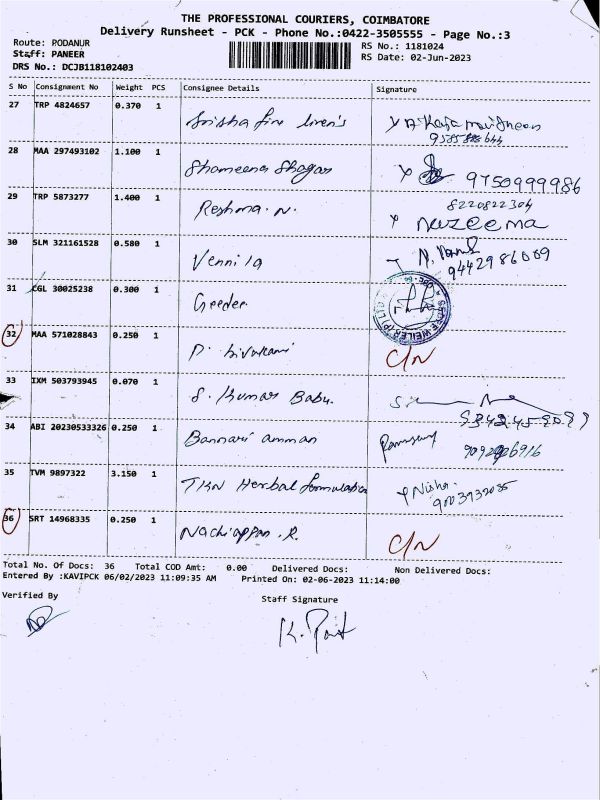 THE PROFESSIONAL COURIERS, COIMBATORE
Delivery Runsheet - PCK - Phone No.:0422-3505555 - Page No.:3
Route: PODANUR
RS No.: 1181024
Staff: PANEER
RS Date: 02-Jun-2023
DRS No.: DCJB118102403
S No Consignment No Weight PCS Consignee Details Signature
27 TRP 4824657 0.370 1
28 MAA 297493102 1.100 1 Shameena
9750999986
29 TRP 5873277 1.400 1 Reshma. N.
8220822304
nazeema
30 SLM 321161528 0.580 1 Vennila
9442986009
31 CGL 30025238 0.300 1 Geedee
32 MAA 571028843 0.250 1 C/N
33 IXM 503793945 0.070 1 S. Kumar Babu.
34 ABI 20230533326 0.250 1 Bannari amman
35 TVM 9897322 3.150 1 TKN Herbal formulation
Nisha
36 SRT 14968335 0.250 1 Nachiappan. R. C/N
Total No. Of Docs: 36 Total COD Amt: 0.00 Delivered Docs: Non Delivered Docs:
Entered By :KAVIPCK 06/02/2023 11:09:35 AM Printed On: 02-06-2023 11:14:00
Verified By
Staff Signature